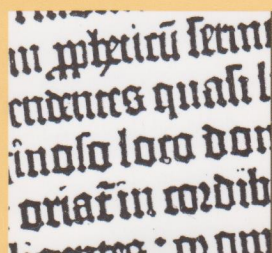 in ꝓph̃eticũ ſerm
endentes quaſi l
inoſo loco don
oriat̃ in cordib